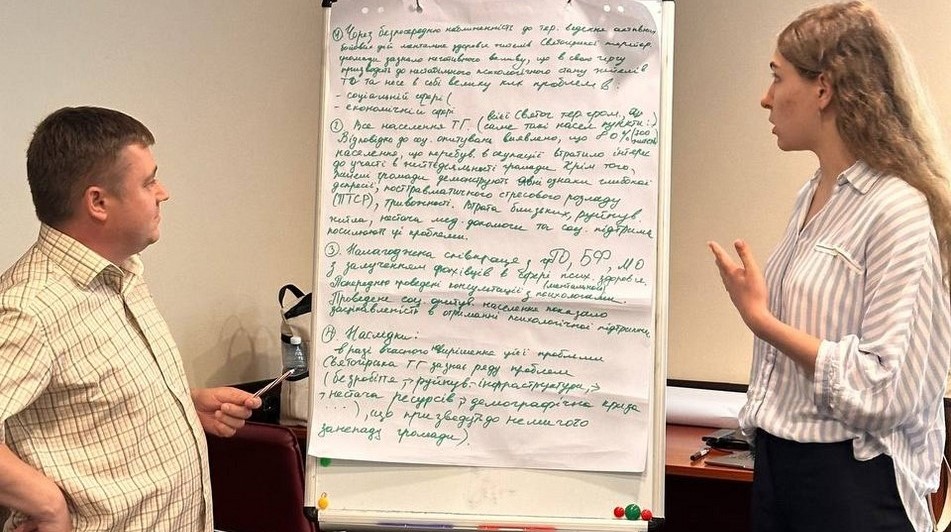 ① Через безпосередню наближеність до тер. ведення активних
бойових дій ментальне здоров'я жителів Святогірської територ.
громади зазнало негативного впливу, що в свою чергу
призводить до нестабільного психологічного стану жителів
ТГ та несе в собі велику к-ть проблем в:
- соціальній сфері (
- економічній сфері
② Все населення ТГ (всієї Святог. тер. гром., що
(саме такі насел. пункти:)
Відповідно до соц. опитування виявлено, що 80% (300
населення, що перебув. в окупації втратило інтерес
до участі в життєдіяльності громади. Крім того,
жителі громади демонструють явні ознаки глибокої
депресії, посттравматичного стресового розладу
(ПТСР), тривожності. Втрата близьких, руйнув.
житла, нестача мед. допомоги та соц. підтримки
посилюють ці проблеми.
③ Налагоджена співпраця з ГО, БФ, МО
з залученням фахівців в сфері псих. здоровя.
(ментальної)
Попередньо проведені консультації з психологами.
Проведене соц. опитув. населення показало
зацікавленість в отриманні психологічної підтримки.
④ Наслідки:
в разі вчасного невирішення цієї проблеми
Святогірська ТГ зазнає ряду проблем
(безробіття → руйнув. інфраструктура →
→ нестача ресурсів → демографічна криза
...), що призведуть до неминучого
занепаду громади).